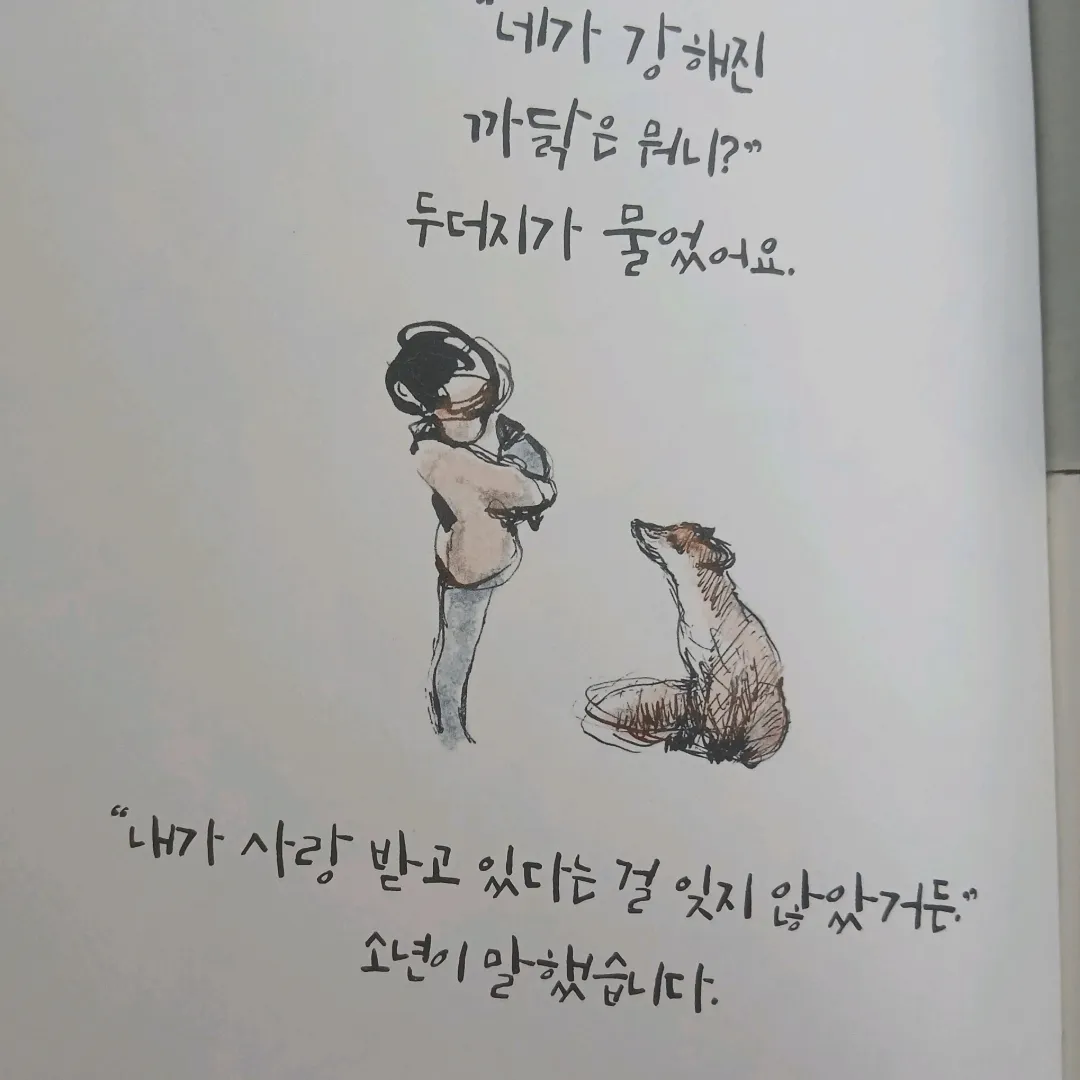 “네가 강해진
까닭은 뭐니?”
두더지가 물었어요.
“내가 사랑 받고 있다는 걸 잊지 않았거든.”
소년이 말했습니다.